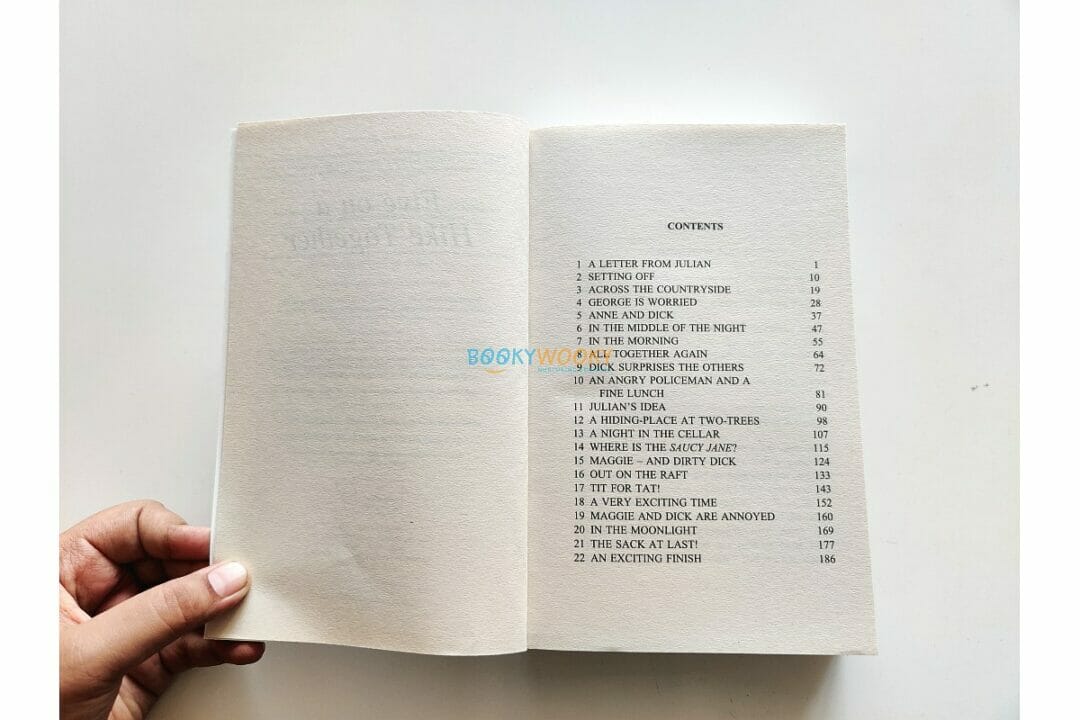 Five on a
Hike Together
CONTENTS
1 A LETTER FROM JULIAN 1
2 SETTING OFF 10
3 ACROSS THE COUNTRYSIDE 19
4 GEORGE IS WORRIED 28
5 ANNE AND DICK 37
6 IN THE MIDDLE OF THE NIGHT 47
7 IN THE MORNING 55
8 ALL TOGETHER AGAIN 64
BOOKYWOOKY
9 DICK SURPRISES THE OTHERS 72
10 AN ANGRY POLICEMAN AND A
FINE LUNCH 81
11 JULIAN'S IDEA 90
12 A HIDING-PLACE AT TWO-TREES 98
13 A NIGHT IN THE CELLAR 107
14 WHERE IS THE SAUCY JANE? 115
15 MAGGIE – AND DIRTY DICK 124
16 OUT ON THE RAFT 133
17 TIT FOR TAT! 143
18 A VERY EXCITING TIME 152
19 MAGGIE AND DICK ARE ANNOYED 160
20 IN THE MOONLIGHT 169
21 THE SACK AT LAST! 177
22 AN EXCITING FINISH 186